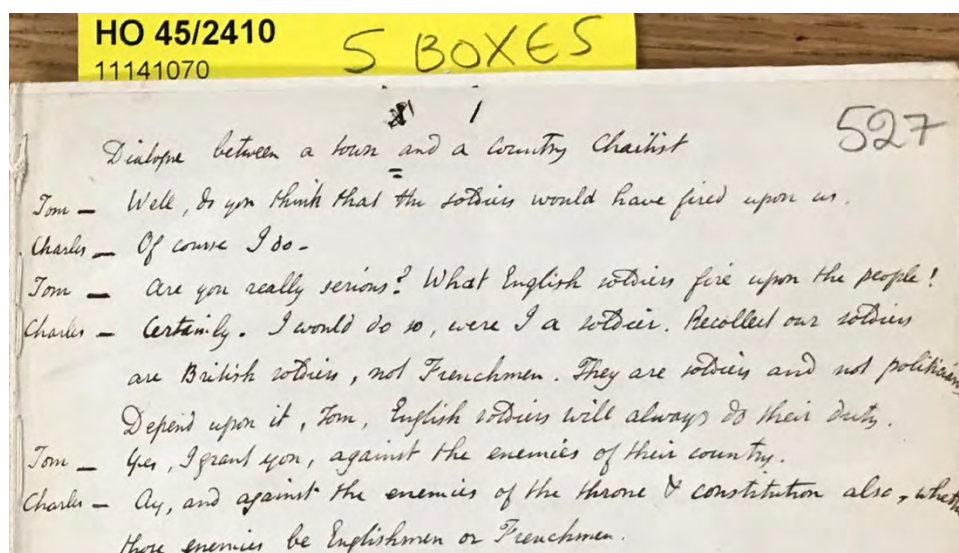 HO 45/2410
11141070
5 BOXES
1
527
Dialogue between a town and a country Chartist
Tom — Well, do you think that the soldiers would have fired upon us.
Charles — Of course I do -
Tom — Are you really serious? What English soldiers fire upon the people!
Charles — Certainly. I would do so, were I a soldier. Recollect our soldiers
are British soldiers, not Frenchmen. They are soldiers and not politicians
Depend upon it, Tom, English soldiers will always do their duty.
Tom — Yes, I grant you, against the enemies of their country.
Charles — Ay, and against the enemies of the throne & constitution also, whether
those enemies be Englishmen or Frenchmen.